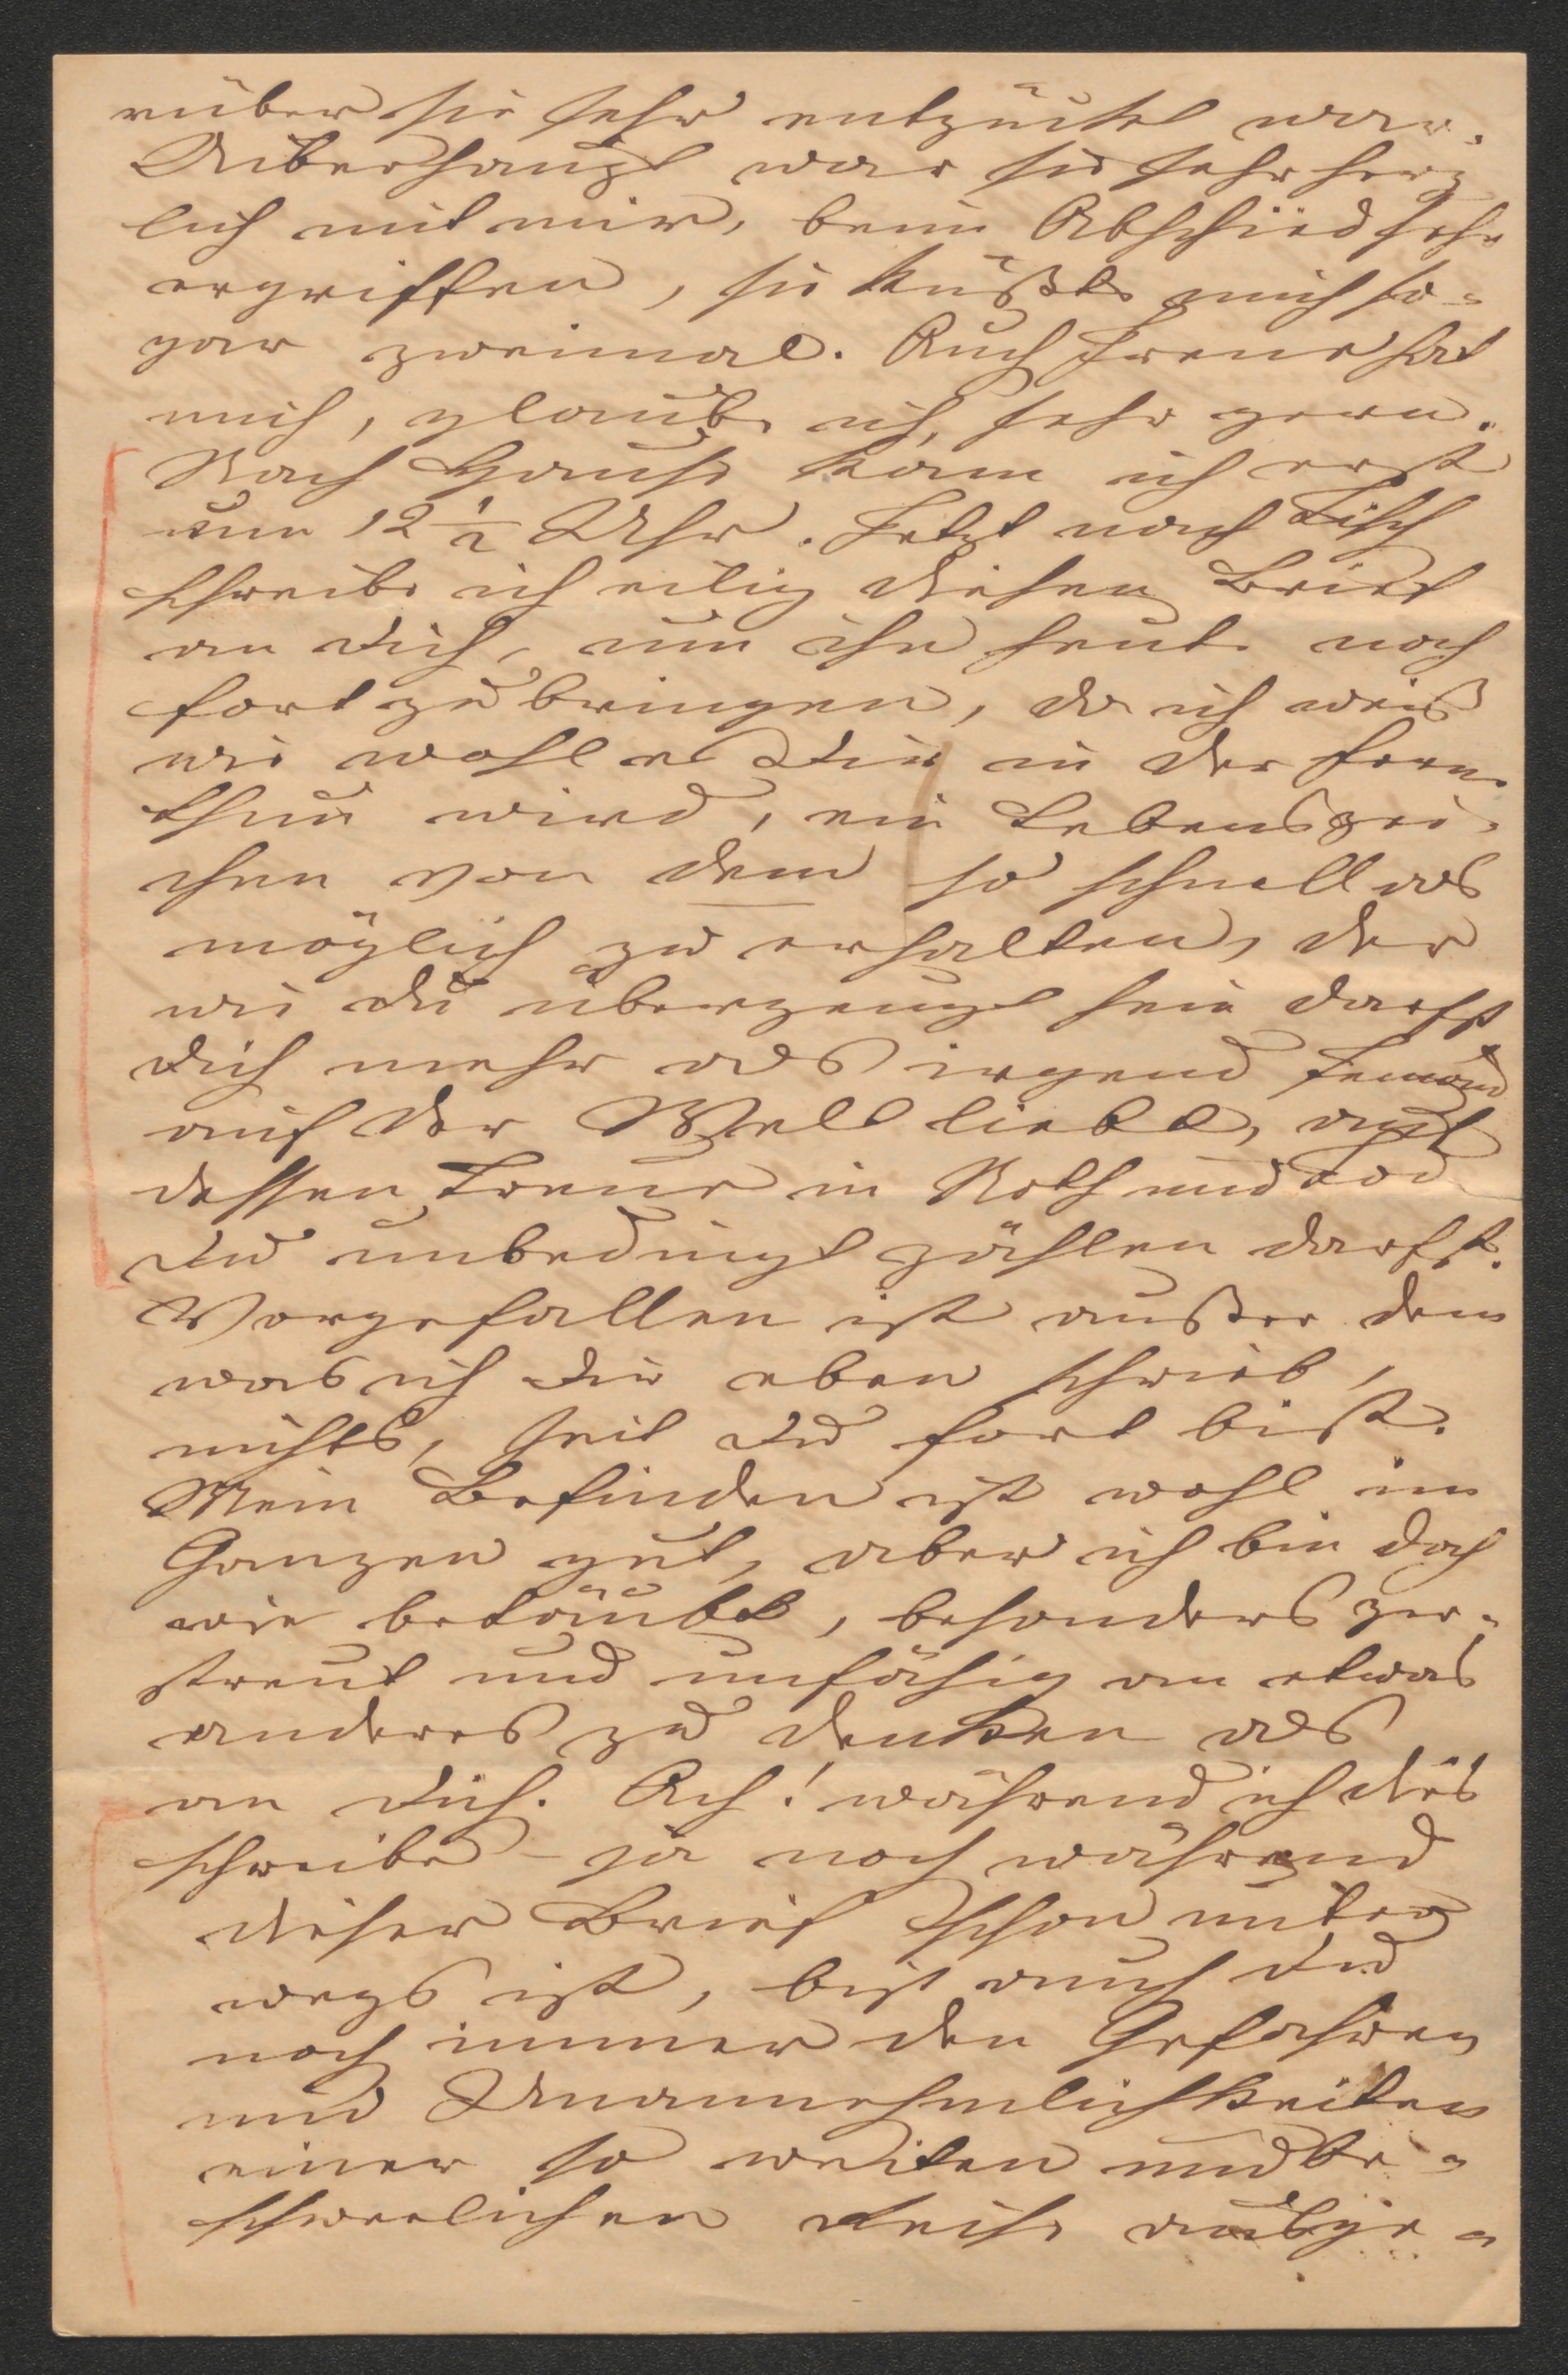 rüber sie sehr entzückt war.
Ueberhaupt war sie sehr herz
lich mit mir, beim Abschied sehr
ergriffen, sie küßte mich so-
gar zweimal. Auch Irene hat
mich, glaube ich, sehr gern.
Nach Hause kam ich erst
um 12 1/2 Uhr. Jetzt nach Tisch
schreibe ich eilig diesen Brief
an Dich, um ihn heute noch
fort zu bringen, da ich weiß
wie wohl es Dir in der Ferne
thun wird, ein Lebenszei-
chen von dem so schnell als
möglich zu erhalten, der
wie Du überzeugt sein darfst
Dich mehr als irgend Jemand
auf der Welt liebt, auf
dessen Treue in Noth und Tod
Du unbedingt zählen darfst.
Vorgefallen ist außer dem
was ich Dir eben schrieb,
nichts, seit Du fort bist.
Mein Befinden ist wohl im
Ganzen gut, aber ich bin doch
wie betäubt, besonders zer-
streut und unfähig an etwas
anderes zu denken als
an Dich. Ach! während ich dies
schreibe – ja noch während
dieser Brief schon unter
wegs ist, bist auch Du
noch immer den Gefahren
und Unannehmlichkeiten
einer so weiten und be-
schwerlichen Reise ausge-